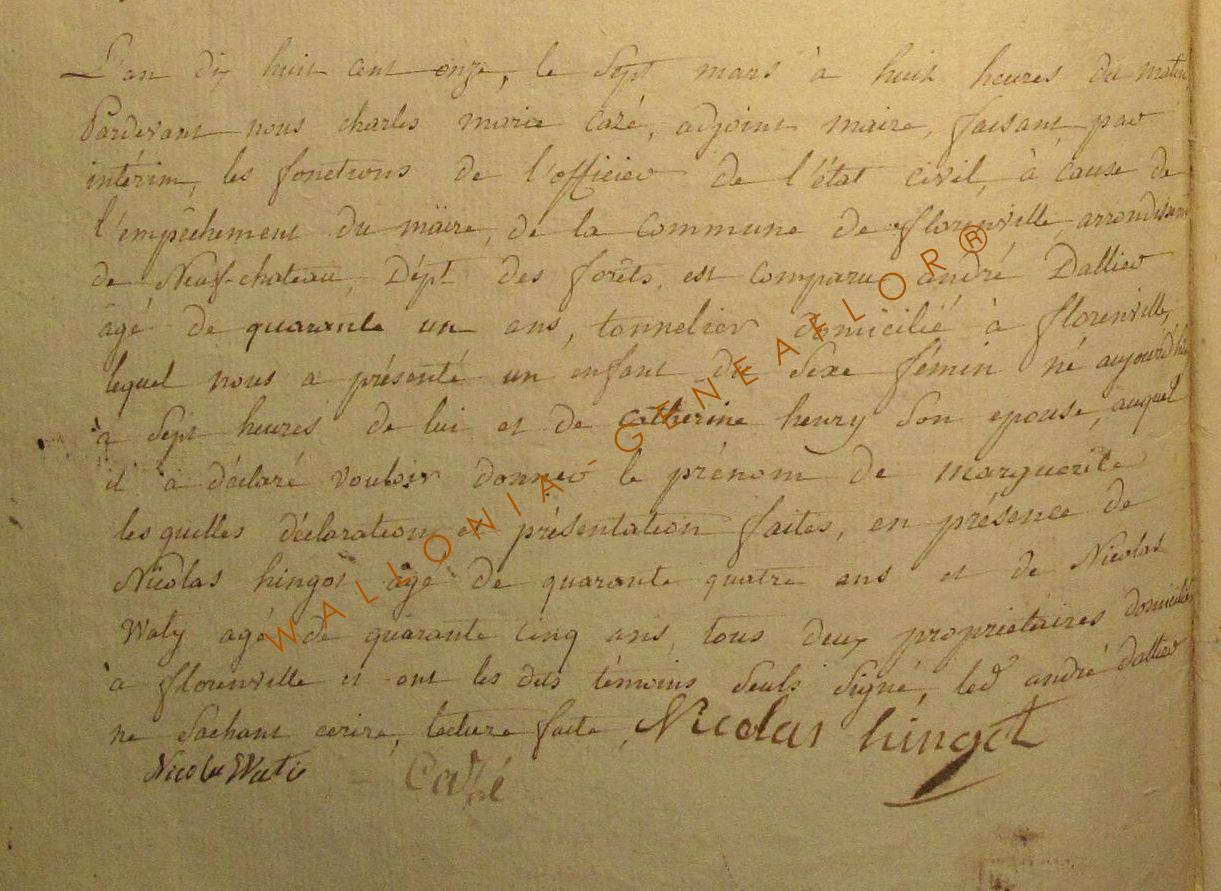 L'an dix huit cent onze, le sept mars à huit heures du matin
Pardevant nous charles marie Cazé, adjoint maire, faisant par
intérim, les fonctions de l'officier de l'état civil, à cause de
l'empêchement du maire, de la commune de florenville, arrondissem
de Neuf-chateau, Dépt des forêts, est comparu andré Dallier
agé de quarante un ans, tonnelier domicilié à florenville,
lequel nous a présenté un enfant du Sexe fémin né aujourd'hui
à sept heures de lui et de catherine henry son epouse, auquel
il a déclaré vouloir donner le prénom de marguerite
lesquelles déclaration et présentation faites, en présence de
Nicolas hingot agé de quarante quatre ans et de Nicolas
Waty agé de quarante cinq ans, tous deux propriétaires domiciliés
à florenville et ont les dits témoins seuls signé, led andré dallier
ne sachant ecrire, lecture faite, Nicolas hingot
Nicolas Watie Cazé
WALLONIA-GENEAFLOR®